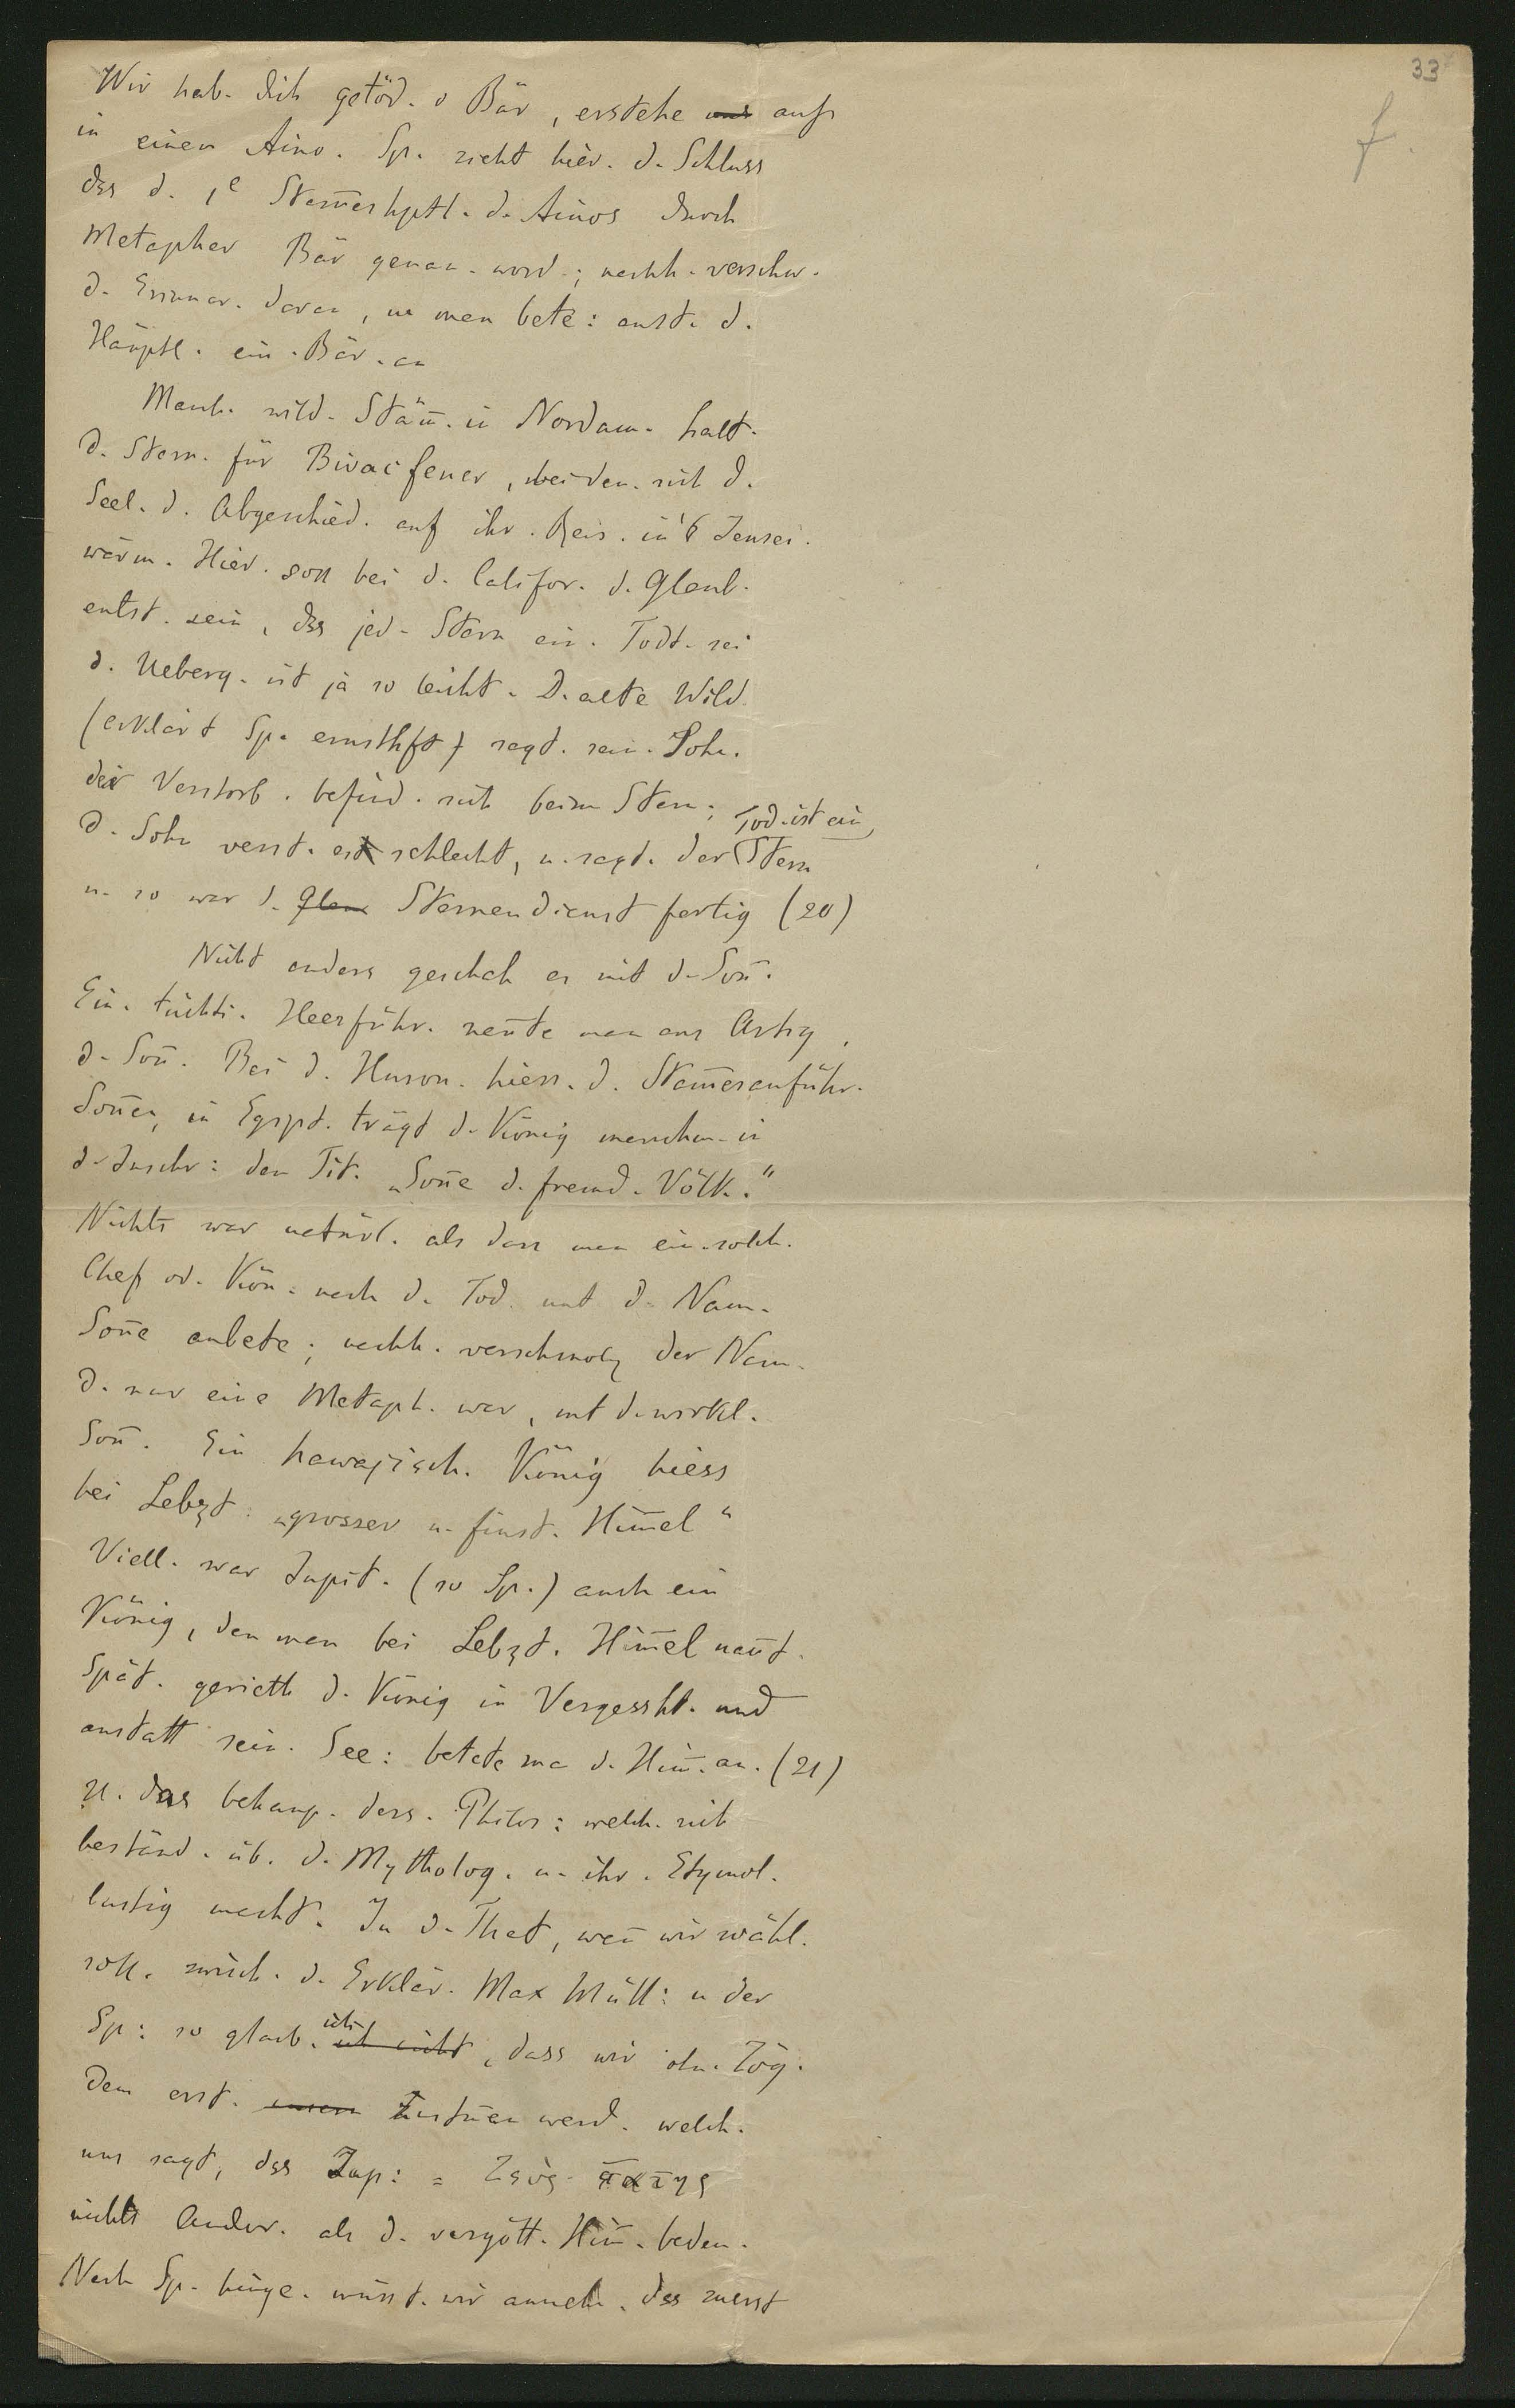 33
f.
Wir hab. dich getöd. o Bär, erstehe uns auf
in einen Aino. Sp. zieht hier. d. Schluss
dss d. 1e Stam̅eshptl. d. Ainos durch
Metapher Bär genan. word.; nachh. verschw.
d. Erinner. daran, u. man bete: anst. d.
Häuptl. ein. Bär. an
Manch. wild. Stäm̅. in Nordam. halt.
d. Stern. für Bivacfeuer, bei den. sich d.
Seel. d. Abgeschied. auf ihr. Reis. in's Jensei.
wärm. Hier. soll bei d. Califor. d. Glaub.
entst. sein, dss jed. Stern ein. Todt. sei
d. Ueberg. ist ja so leicht. D. alte Wild.
(erklärt Sp. ernsthft) sagt. sein. Sohn.
der Verstorb. befind. sich beim Stern;
d. Sohn verst. es schlecht, u. sagt. der Tod. ist ein Stern
u. so war d. Glau Sternendienst fertig (20)
Nicht anders geschah es mit d. Son̅.
Ein. tüchti. Heerführ. nen̅te man aus
d. Son̅. Bei d. Huron. hiess. d. Stam̅esanführ.
Son̅en, in Egypt. trägt d. König manchm. in
d. Inschr: den Tit. „Son̅e d. fremd. Völk."
Nichts war natürl. als dass man ein. solch.
Chef od. Kön: nach d. Tod. unt d. Nam.
Son̅e anbete; nachh. verschmolz der Nam.
d. nur eine Metaph. war, mt d. wirkl.
Son̅. Ein hawajisch. König hiess
bei Lebzt: „grosser u. finst. Him̅el"
Viell. war Jupit. (so Sp.) auch ein
König, den man bei Lebzt. Him̅el nan̅t.
Spät. gerieth d. König in Vergessht. und
anstatt sein. See: betete ma d. Him̅. an. (21)
U. das behaup. ders. Philos: welch. sich
beständ. üb. d. Mytholog. u. ihr. Etymol.
lustig macht. In d. That, wen̅ wir wähl.
soll. zwisch. d. Erklär. Max Müll: u der
Sp: so glaub. ich ich nicht, dass wir ohn. Zög.
dem erst. zustim̅en werd. welch.
uns sagt, dss Jup: = Ζεὺς πατης
nichts Ander. als d. vergött. Him̅. bedeu.
Nach Sp. hinge. müsst. wir anneh. dss zuerst